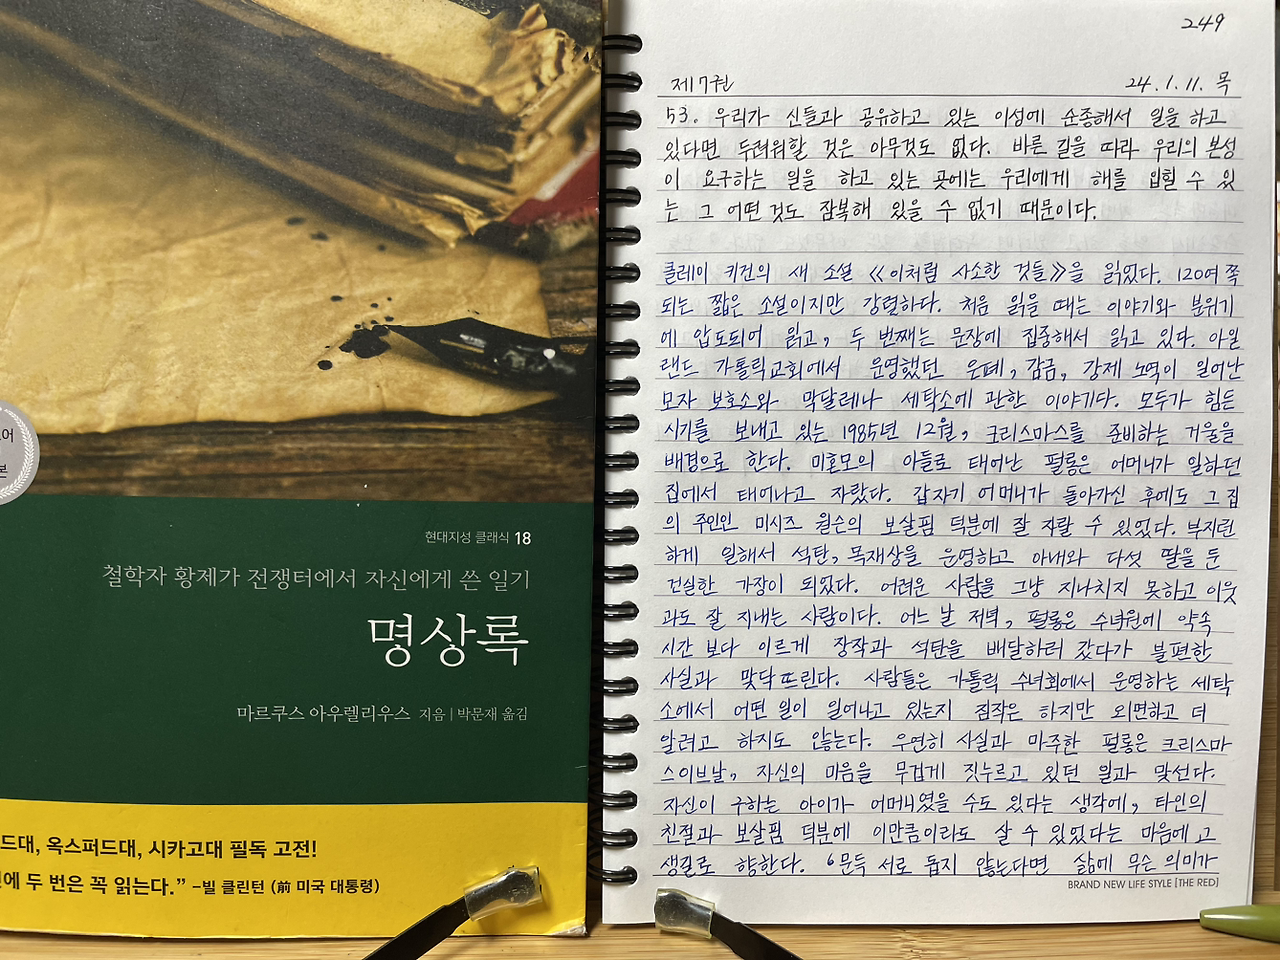 어
본
현대지성 클래식 18
철학자 황제가 전쟁터에서 자신에게 쓴 일기
명상록
마르쿠스 아우렐리우스 지음 | 박문재 옮김
드대, 옥스퍼드대, 시카고대 필독 고전!
에 두 번은 꼭 읽는다.” –빌 클린턴 (前 미국 대통령)
249
제7권 24.1.11. 목
53. 우리가 신들과 공유하고 있는 이성에 순종해서 일을 하고
있다면 두려워할 것은 아무것도 없다. 바른 길을 따라 우리의 본성
이 요구하는 일을 하고 있는 곳에는 우리에게 해를 입힐 수 있
는 그 어떤 것도 잠복해 있을 수 없기 때문이다.
클레이 키건의 새 소설 《이처럼 사소한 것들》을 읽었다. 120여 쪽
되는 짧은 소설이지만 강렬하다. 처음 읽을 때는 이야기와 분위기
에 압도되어 읽고, 두 번째는 문장에 집중해서 읽고 있다. 아일
랜드 가톨릭교회에서 운영했던 은폐, 감금, 강제 노역이 일어난
모자 보호소와 막달레나 세탁소에 관한 이야기다. 모두가 힘든
시기를 보내고 있는 1985년 12월, 크리스마스를 준비하는 겨울을
배경으로 한다. 미혼모의 아들로 태어난 펄롱은 어머니가 일하던
집에서 태어나고 자랐다. 갑자기 어머니가 돌아가신 후에도 그 집
의 주인인 미시즈 윌슨의 보살핌 덕분에 잘 자랄 수 있었다. 부지런
하게 일해서 석탄, 목재상을 운영하고 아내와 다섯 딸을 둔
건실한 가장이 되었다. 어려운 사람을 그냥 지나치지 못하고 이웃
과도 잘 지내는 사람이다. 어느 날 저녁, 펄롱은 수녀원에 약속
시간 보다 이르게 장작과 석탄을 배달하러 갔다가 불편한
사실과 맞닥뜨린다. 사람들은 가톨릭 수녀회에서 운영하는 세탁
소에서 어떤 일이 일어나고 있는지 짐작은 하지만 외면하고 더
알려고 하지도 않는다. 우연히 사실과 마주한 펄롱은 크리스마
스이브날, 자신의 마음을 무겁게 짓누르고 있던 일과 맞선다.
자신이 구하는 아이가 어머니였을 수도 있다는 생각에, 타인의
친절과 보살핌 덕분에 이만큼이라도 살 수 있었다는 마음에 고
생길로 향한다. ‘문득 서로 돕지 않는다면 삶에 무슨 의미가
BRAND NEW LIFE STYLE [THE RED]